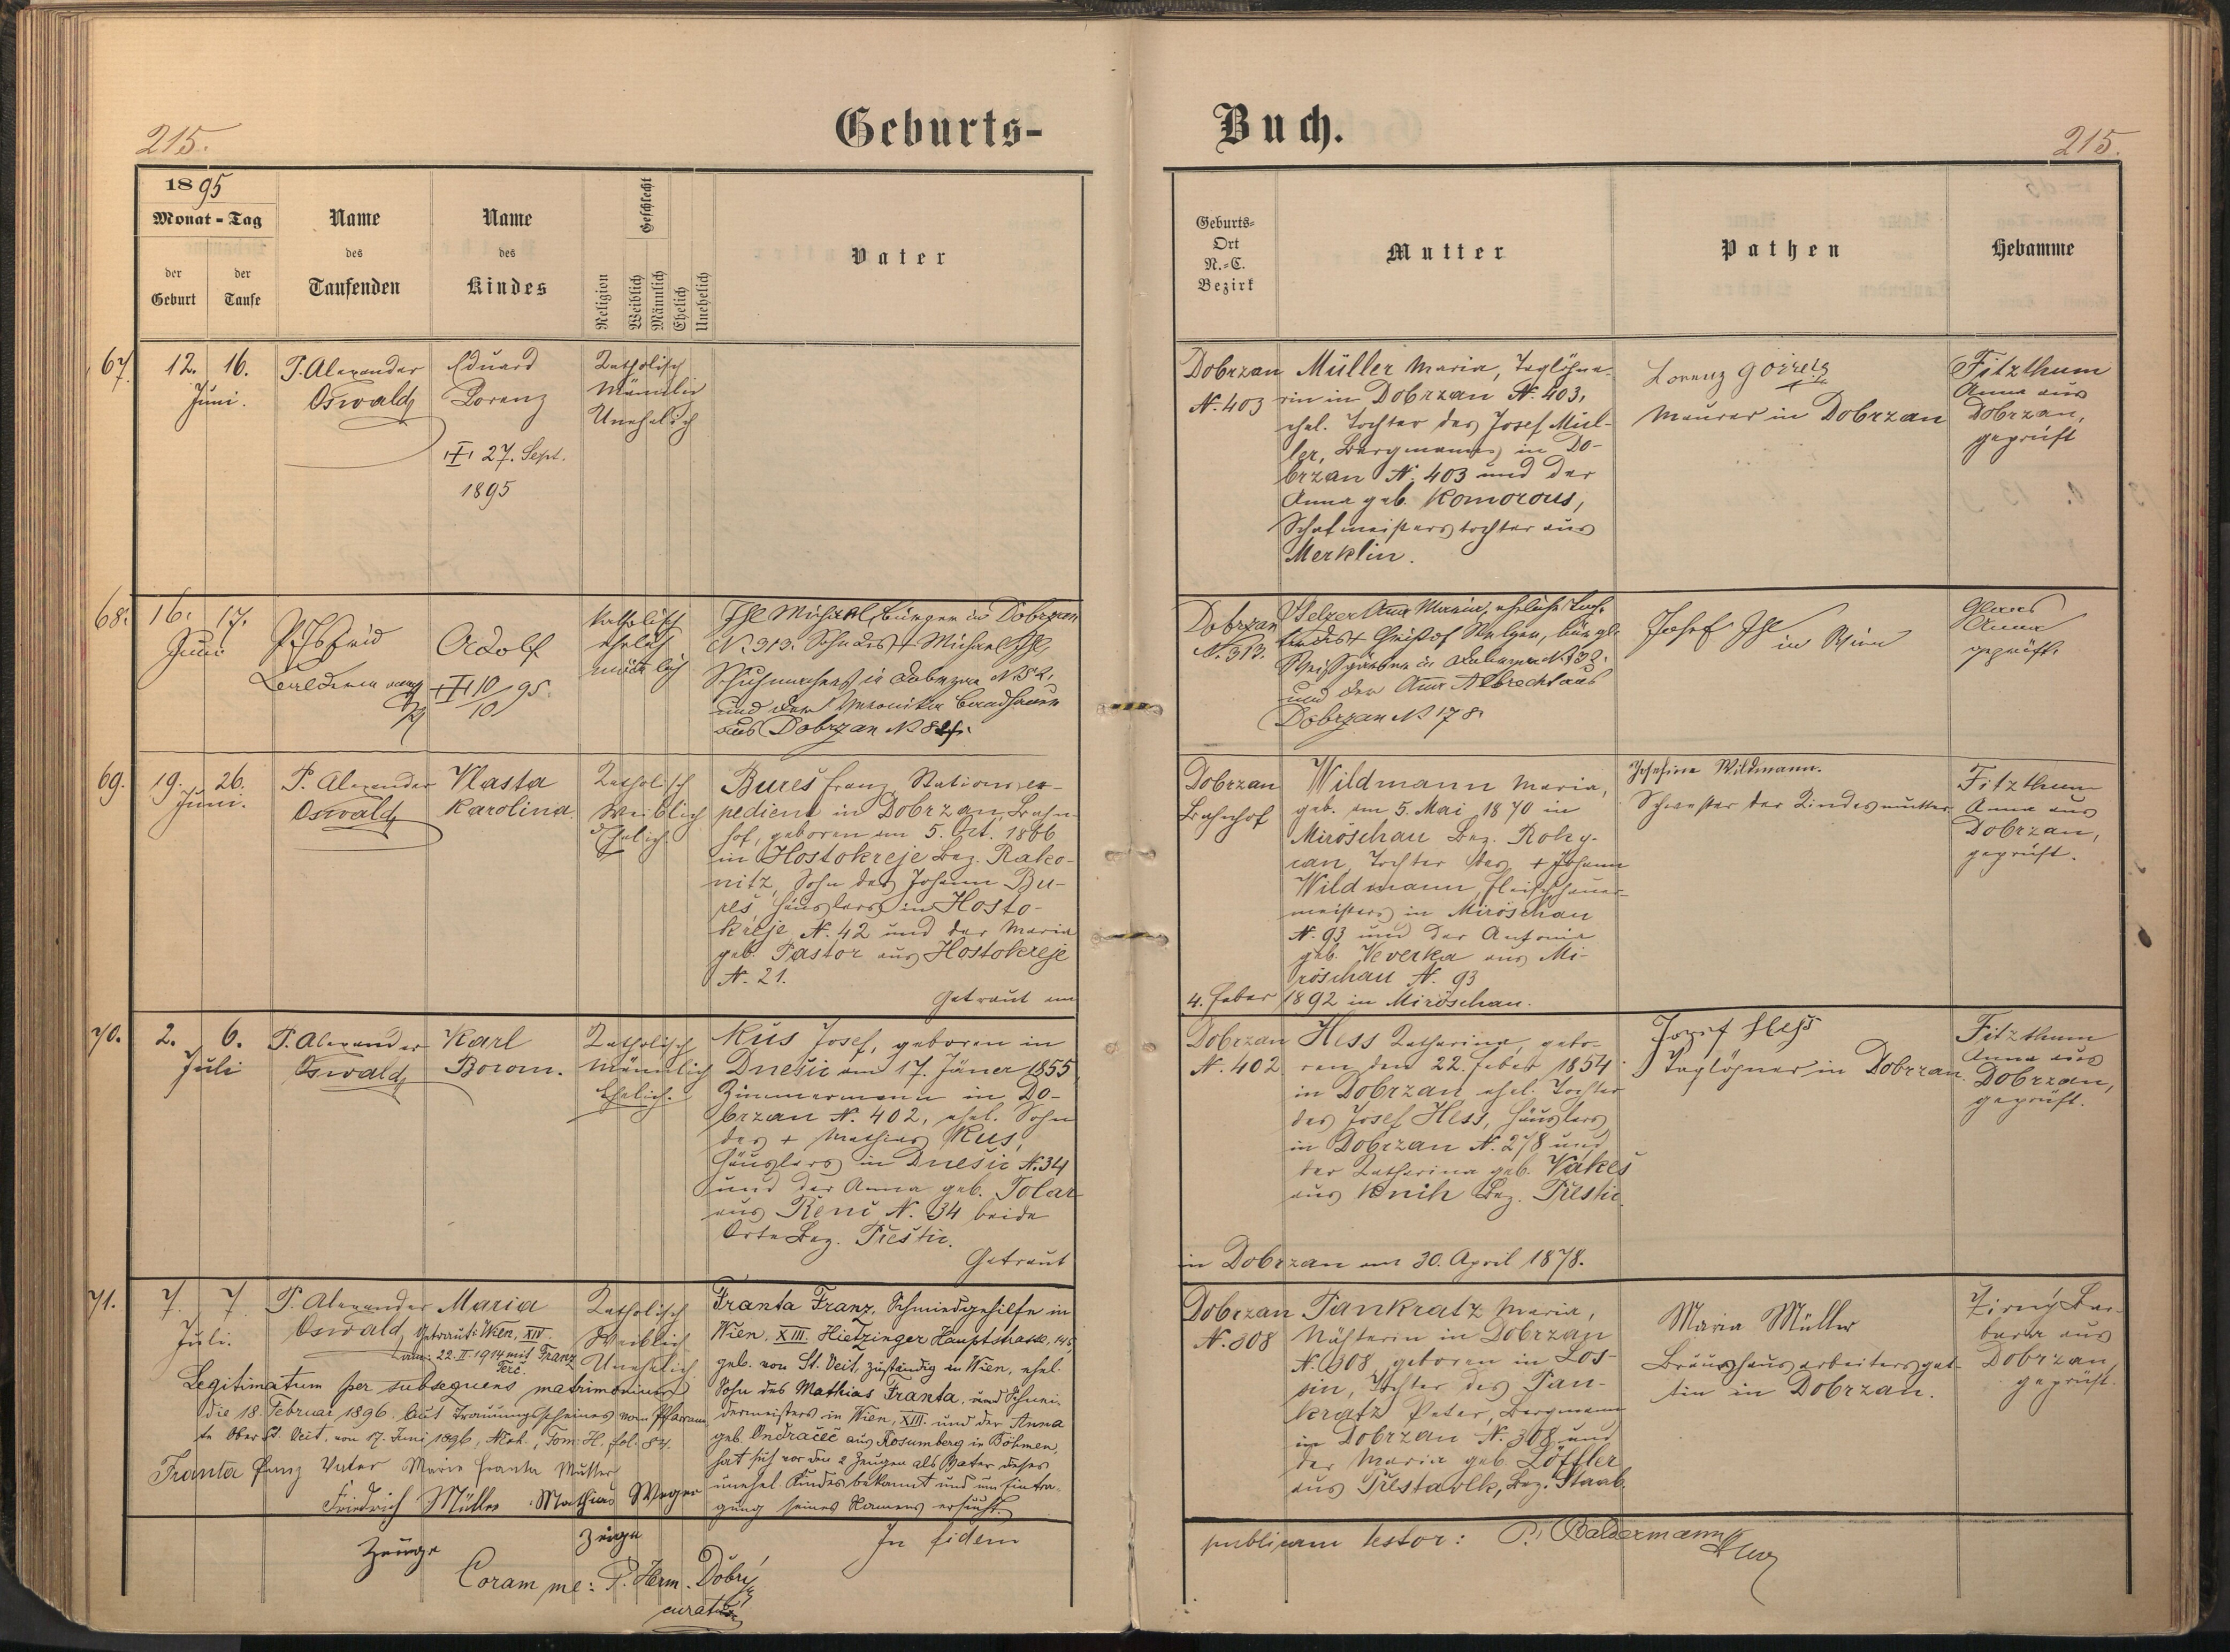 Geburts-
Buch.
215.
215.
1895
Monat - Tag
der Geburt
der Taufe
Name des Taufenden
Name des Kindes
Religion
Geschlecht
Weiblich
Männlich
Ehelich
Unehelich
Vater
Geburts-
Ort
N.-C.
Bezirk
Mutter
Pathen
Hebamme
67.
12. 16.
Juni.
P. Alexander
Oswald
Eduard
Lorenz
27. Sept.
1895
Katholisch
Männlich
Unehelich
Dobrzan
N. 403
Müller Maria, Taglöhne-
rin in Dobrzan N. 403,
ehel. Tochter des Josef Mül-
ler, Bergmannes in Do-
brzan N. 403 und der
Anna geb. Komorous,
Schafmeisterstochter aus
Merklin.
Lorenz
Maurer in Dobrzan
Fitzthum
Anna aus
Dobrzan,
geprüft
68.
16. 17.
Juni
Adolf
10/10 95.
Katholisch
ehelich
männlich
Ihl Michael, bürger in Dobrzan
N. 313. Sohn des + Michael Ihl,
Schuhmachers in Dobrzan N. 52,
und der Veronika
aus Dobrzan N
Dobrzan
N. 313.
Selzer Anna Maria, eheliche Toch-
ter des + Christof Selzer, bürgl.
Weissgärber in Dobrzan N. 132.
und der Anna Albrecht aus
Dobrzan N 178.
Josef Ihl in Wien
Anna
geprüft.
69.
19. 26.
Juni.
P. Alexander
Oswald
Vlasta
Karolina
Katholisch
Weiblich
Ehelich
Bureš Franz, Stationsex-
pedient in Dobrzan, Bahn-
hof, geboren am 5. Oct. 1866
in Hostokreje Bez. Rako-
nitz, Sohn des Johann Bu-
reš, Häuslers in Hosto-
kreje N. 42 und der Maria
geb. Pastor aus Hostokreje
N. 21.
Getraut am
Dobrzan
Bahnhof
Wildmann Maria,
geb. am 5. Mai 1870 in
Miröschau Bez. Roky-
can, Tochter des + Johann
Wildmann, Fleischhauer-
meisters in Miröschau
N. 93 und der Antonia
geb. Veverka aus Mi-
röschau N. 93
4. Feber 1892 in Miröschau.
Josefine Wildmann.
Schwester der Kindesmutter
Fitzthum
Anna aus
Dobrzan,
geprüft.
70.
2. 6.
Juli
P. Alexander
Oswald
Karl
Borom.
Katholisch
Männlich
Ehelich.
Kus Josef, geboren in
Dnešic am 17. Jäner 1855
Zimmermann in Do-
brzan N. 402, ehel. Sohn
des + Mathias Kus,
Häuslers in Dnešic N. 34
und der Anna geb. Tolar
aus Řenč N. 34 beide
Orte Bez. Přestic.
Getraut
Dobrzan
N. 402
Hess Katharina, gebo-
ren den 22. Feber 1854
in Dobrzan, ehel. Tochter
des Josef Hess, Häuslers
in Dobrzan N. 278 und
der Katharina geb. Vakeš
aus Knih Bez. Přestic
in Dobrzan am 30. April 1878.
Josef Hess
Taglöhner in Dobrzan.
Fitzthum
Anna aus
Dobrzan,
geprüft.
71.
7. 7
Juli.
P. Alexander
Oswald
Maria
Getraut: Wien, XIV.
am: 22. II 1914 mit Franz
Terč.
Katholisch
Weiblich
Unehelich
Legitimatum per subsequens matrimonium
die 18. Februar 1896 laut Trauungsscheines vom Pfarram-
te Ober St. Veit, von 17. Juni 1896, Tom: H. fol. 84.
Franta Franz Vater Marie Franta Mutter
Friedrich Müller Mathias Weger
Zeuge Zeuge
Coram me: P. Herm. Dobrý
curatus
Franta Franz, Schmiedgehilfe in
Wien, XIII. Hietzinger Hauptstrasse, 145,
geb. von St. Veit, zuständig in Wien, ehel.
Sohn des Mathias Franta, und Schnei-
dermeisters in Wien, XIII. und der Anna
geb. Ondračeč aus Rosumberg in Böhmen,
hat sich vor den 2 Zeugen als Vater dieses
unehel. Kindes bekannt und um Eintra-
gung seines Namens ersucht.
In fidem
Dobrzan
N. 308
Pankratz Maria,
Nähterin in Dobrzan
N. 308, geboren in Los-
sin, Tochter des Pan-
kratz Peter, Bergmann
in Dobrzan N. 308 und
der Maria geb. Löffler
aus Přestavlk, Bez. Staab.
Maria Müller
Bräuhausarbeitersgat-
tin in Dobrzan.
Zirný Bar-
bara aus
Dobrzan,
geprüft.
publicam testor: P. Baldermann